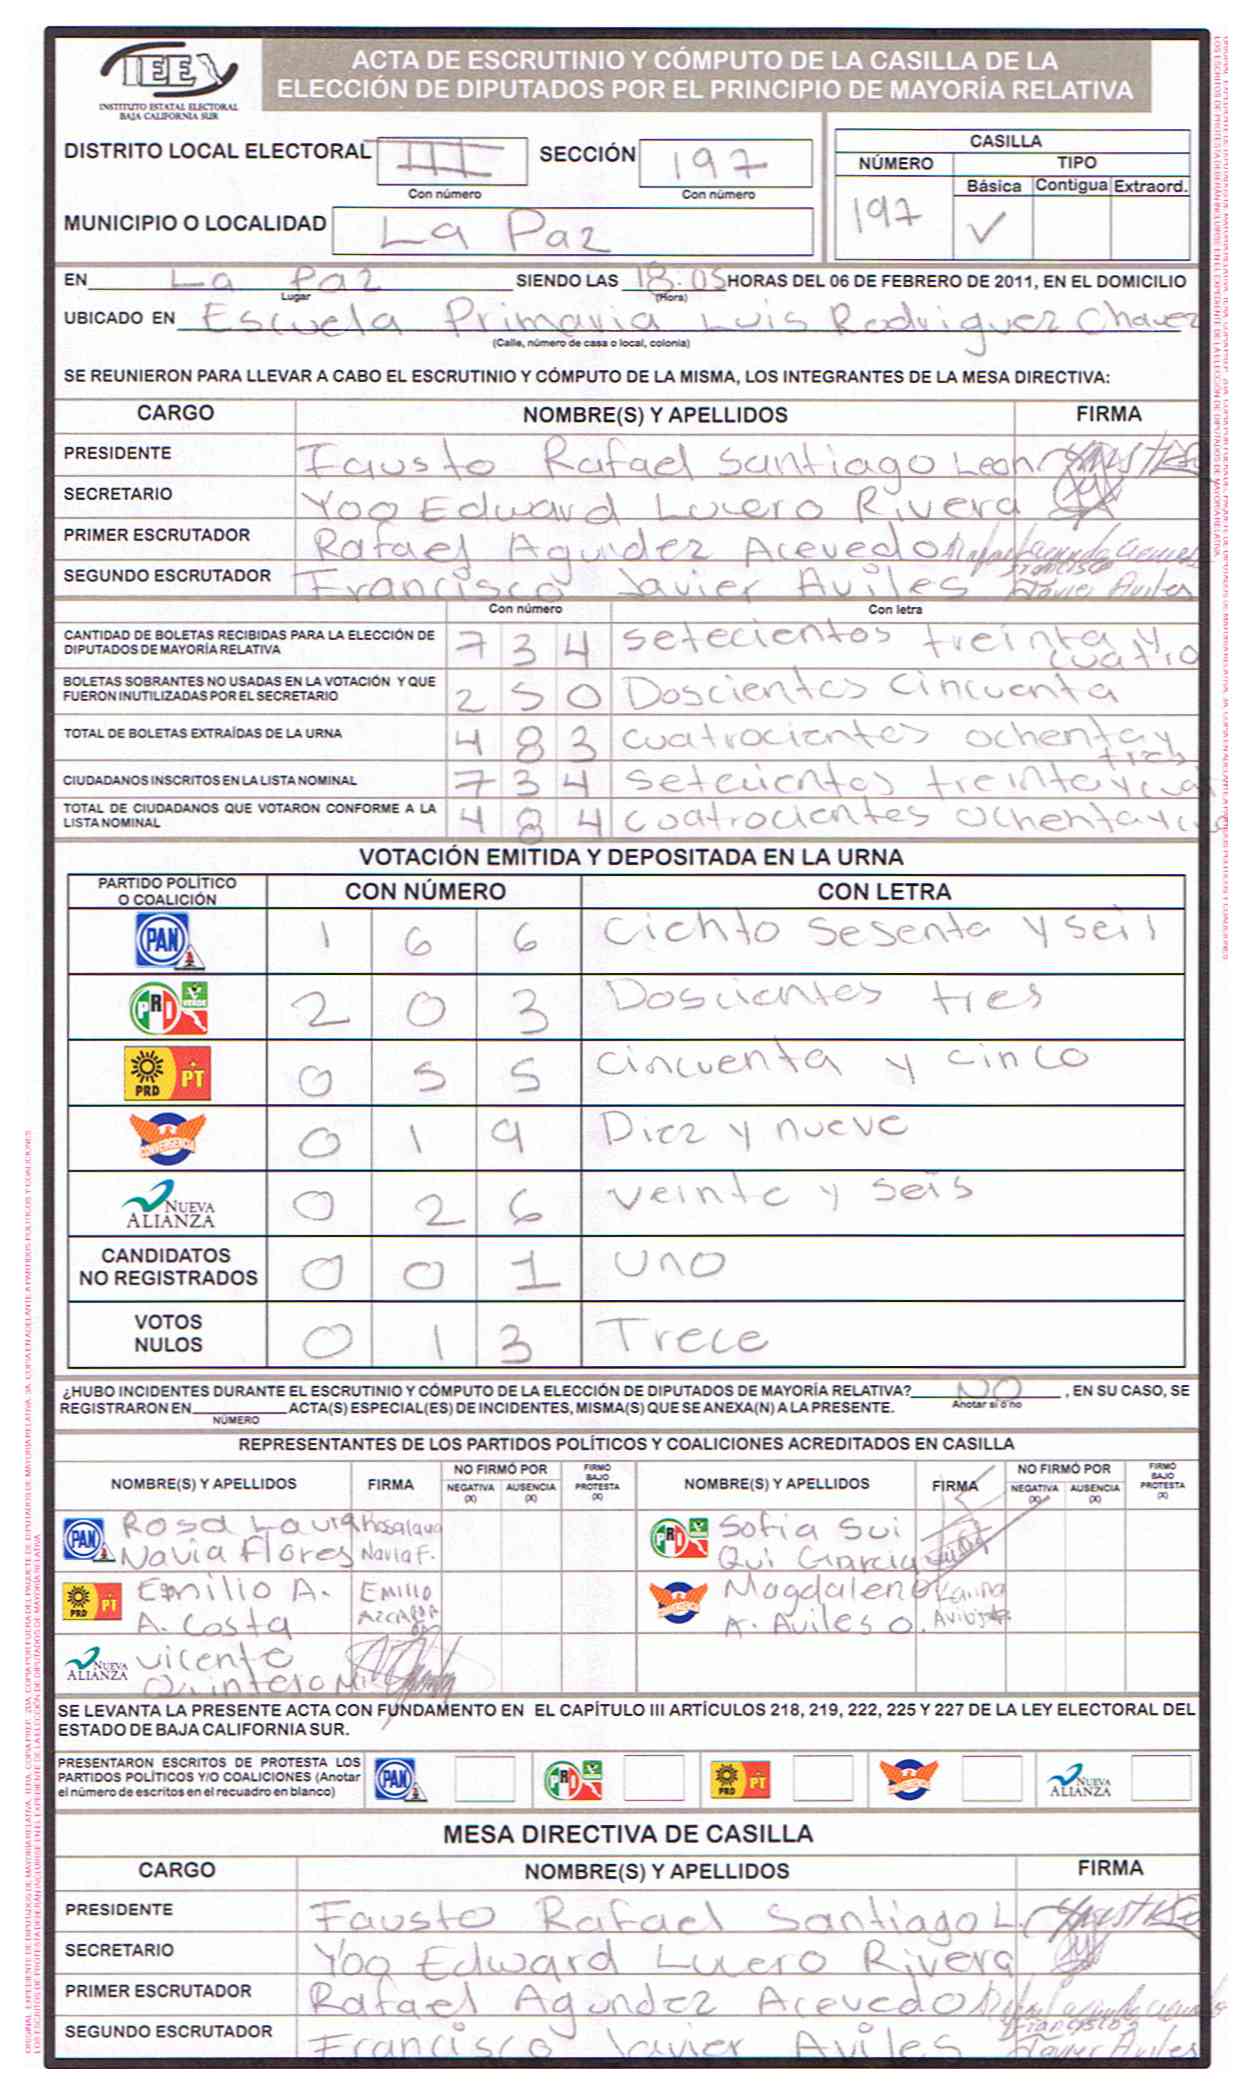 IEEX
INSTITUTO ESTATAL ELECTORAL
BAJA CALIFORNIA SUR
ACTA DE ESCRUTINIO Y CÓMPUTO DE LA CASILLA DE LA
ELECCIÓN DE DIPUTADOS POR EL PRINCIPIO DE MAYORÍA RELATIVA
DISTRITO LOCAL ELECTORAL III SECCIÓN 197
Con número Con número
MUNICIPIO O LOCALIDAD La Paz
CASILLA
NÚMERO TIPO
Básica Contigua Extraord.
197 ✓
EN La Paz SIENDO LAS 18:05 HORAS DEL 06 DE FEBRERO DE 2011, EN EL DOMICILIO
Lugar (Hora)
UBICADO EN Escuela Primaria Luis Rodriguez Chavez
(Calle, número de casa o local, colonia)
SE REUNIERON PARA LLEVAR A CABO EL ESCRUTINIO Y CÓMPUTO DE LA MISMA, LOS INTEGRANTES DE LA MESA DIRECTIVA:
CARGO NOMBRE(S) Y APELLIDOS FIRMA
PRESIDENTE Fausto Rafael Santiago Leon
SECRETARIO Yoo Edward Lucero Rivera
PRIMER ESCRUTADOR Rafael Agundez Acevedo
SEGUNDO ESCRUTADOR Francisco Javier Aviles Francisco Javier Aviles
Con número Con letra
CANTIDAD DE BOLETAS RECIBIDAS PARA LA ELECCIÓN DE
DIPUTADOS DE MAYORÍA RELATIVA 7 3 4 setecientos treinta y cuatro
BOLETAS SOBRANTES NO USADAS EN LA VOTACIÓN Y QUE
FUERON INUTILIZADAS POR EL SECRETARIO 2 5 0 Doscientos cincuenta
TOTAL DE BOLETAS EXTRAÍDAS DE LA URNA 4 8 3 cuatrocientos ochenta y tres
CIUDADANOS INSCRITOS EN LA LISTA NOMINAL 7 3 4 setecientos treinta y cua
TOTAL DE CIUDADANOS QUE VOTARON CONFORME A LA
LISTA NOMINAL 4 8 4 cuatrocientos ochenta y
VOTACIÓN EMITIDA Y DEPOSITADA EN LA URNA
PARTIDO POLÍTICO
O COALICIÓN CON NÚMERO CON LETRA
PAN 1 6 6 Ciento sesenta y seis
PRI VERDE 2 0 3 Doscientos tres
PRD PT 0 5 5 cincuenta y cinco
CONVERGENCIA 0 1 9 Diez y nueve
NUEVA ALIANZA 0 2 6 veinte y seis
CANDIDATOS
NO REGISTRADOS 0 0 1 uno
VOTOS
NULOS 0 1 3 Trece
¿HUBO INCIDENTES DURANTE EL ESCRUTINIO Y CÓMPUTO DE LA ELECCIÓN DE DIPUTADOS DE MAYORÍA RELATIVA? NO , EN SU CASO, SE
Anotar si o no
REGISTRARON EN ACTA(S) ESPECIAL(ES) DE INCIDENTES, MISMA(S) QUE SE ANEXA(N) A LA PRESENTE.
NÚMERO
REPRESENTANTES DE LOS PARTIDOS POLÍTICOS Y COALICIONES ACREDITADOS EN CASILLA
NOMBRE(S) Y APELLIDOS FIRMA NO FIRMÓ POR NEGATIVA (X) AUSENCIA (X) FIRMÓ BAJO PROTESTA (X) NOMBRE(S) Y APELLIDOS FIRMA NO FIRMÓ POR NEGATIVA (X) AUSENCIA (X) FIRMÓ BAJO PROTESTA (X)
PAN Rosa Laura Navia Flores Rosalaura Navia F.
PRI VERDE Sofia Sui Qui Garcia
PRD PT Emilio A. A. Costa EMILIO
CONVERGENCIA Magdaleno A. Aviles O.
NUEVA ALIANZA Vicente Quintero M.
SE LEVANTA LA PRESENTE ACTA CON FUNDAMENTO EN EL CAPÍTULO III ARTÍCULOS 218, 219, 222, 225 Y 227 DE LA LEY ELECTORAL DEL
ESTADO DE BAJA CALIFORNIA SUR.
PRESENTARON ESCRITOS DE PROTESTA LOS
PARTIDOS POLÍTICOS Y/O COALICIONES (Anotar
el número de escritos en el recuadro en blanco)
PAN PRI VERDE PRD PT CONVERGENCIA NUEVA ALIANZA
MESA DIRECTIVA DE CASILLA
CARGO NOMBRE(S) Y APELLIDOS FIRMA
PRESIDENTE Fausto Rafael Santiago L.
SECRETARIO Yoo Edward Lucero Rivera
PRIMER ESCRUTADOR Rafael Agundez Acevedo
SEGUNDO ESCRUTADOR Francisco Javier Aviles Francisco Javier Aviles